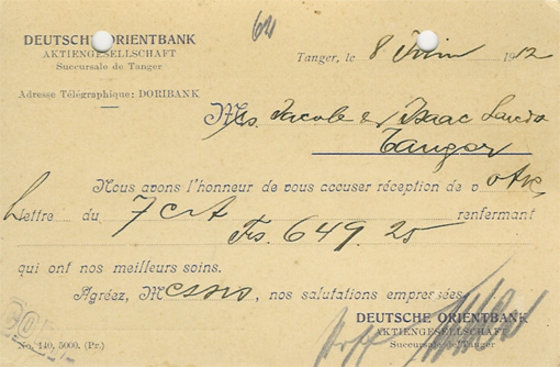 64
DEUTSCHE ORIENTBANK
AKTIENGESELLSCHAFT
Succursale de Tanger
Tanger, le 8 Juin 1912
Adresse Télégraphique: DORIBANK
Mrs. Jacob & Isaac
Tanger
Nous avons l'honneur de vous accuser réception de votre
Lettre du 7 crt renfermant
Frs. 649.25
qui ont nos meilleurs soins.
Agréez, Messrs, nos salutations empressées.
DEUTSCHE ORIENTBANK
AKTIENGESELLSCHAFT
Succursale de Tanger
No. 140, 5000. (Pr.)